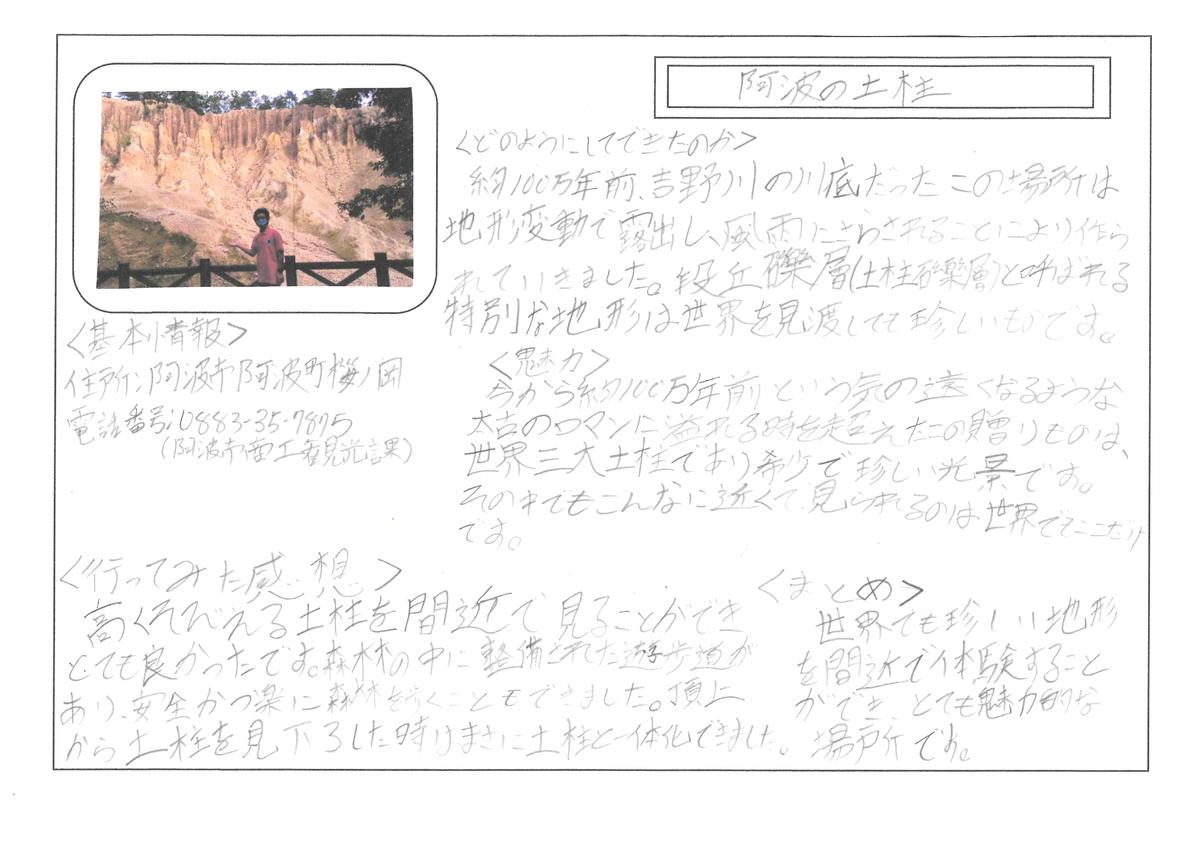 阿波の土柱
<どのようにしてできたのか>
約100万年前、吉野川の川底だったこの場所は
地形変動で露出し、風雨にさらされることにより作ら
れていきました。段丘礫層(土柱礫層)と呼ばれる
特別な地形は世界を見渡しても珍しいものです。
<基本情報>
住所:阿波市阿波町桜ノ岡
電話番号:0883-35-7875
(阿波市商工観光課)
<魅力>
今から約100万年前という気の遠くなるような
太古のロマンに溢れる時を超えたこの贈りものは、
世界三大土柱であり希少で珍しい光景です。
その中でもこんなに近くで見られるのは世界でもここだけ
です。
<行ってみた感想>
高くそびえる土柱を間近で見ることができ
とても良かったです。森林の中に整備された遊歩道が
あり、安全かつ楽に森林を歩くこともできました。頂上
から土柱を見下ろした時はまさに土柱と一体化できました。
<まとめ>
世界でも珍しい地形
を間近で体験すること
ができ、とても魅力的な
場所です。